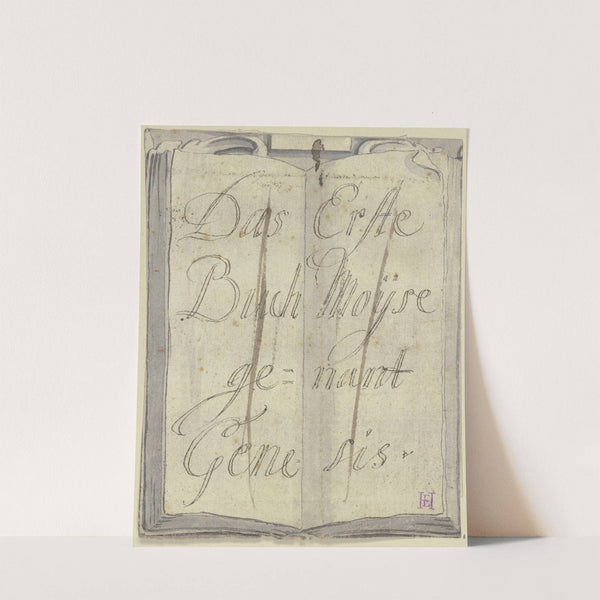 Das Erste
Buch Moÿse
ge= nant
Gene= sis.
HH